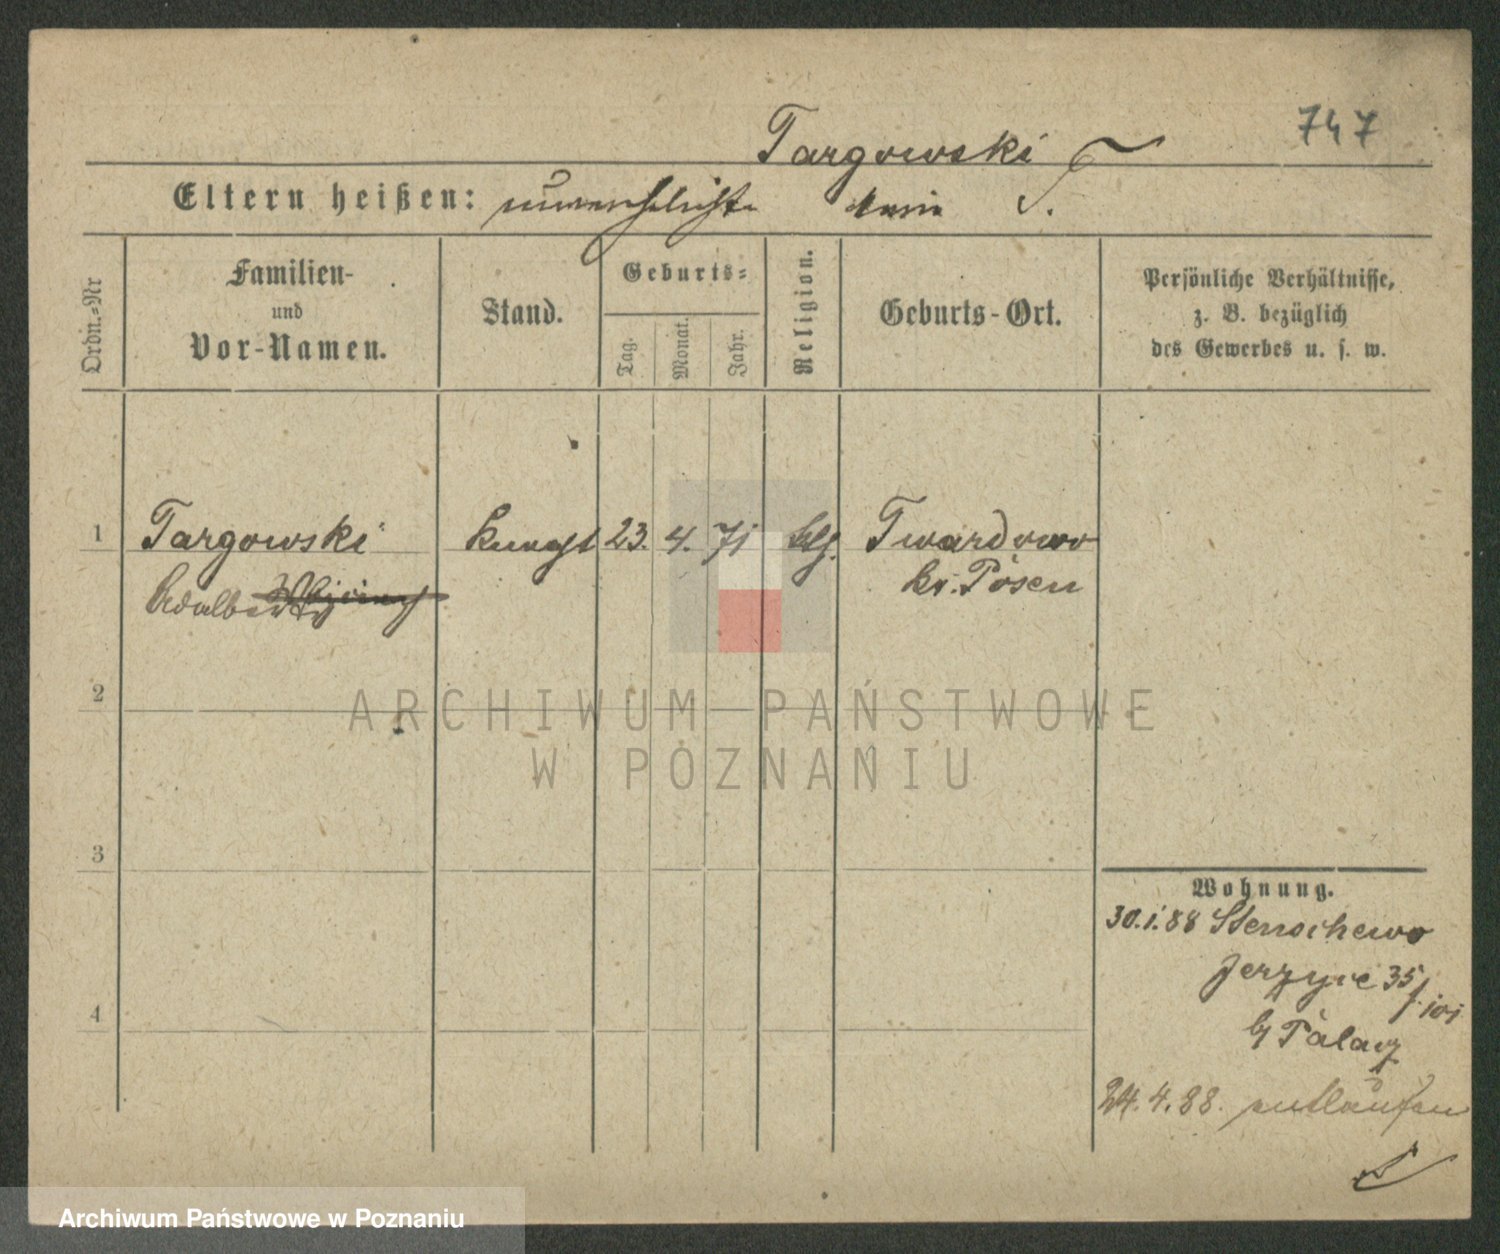 747
Targowski
Eltern heißen: unverehelichte T.
Ordn.-Nr
Familien-
und
Vor-Namen.
Stand.
Geburts-
Tag.
Monat.
Jahr.
Religion.
Geburts-Ort.
Persönliche Verhältnisse,
z. B. bezüglich
des Gewerbes u. s. w.
1
Targowski
Adalbert
Knecht
23.
4.
71
klj.
Twardowo
Kr. Posen
2
3
4
Wohnung.
30.1.88 Stenschewo
Jerzyce 35/
b/ Palacz
24.4.88. entlaufen
ARCHIWUM PAŃSTWOWE
W POZNANIU
Archiwum Państwowe w Poznaniu